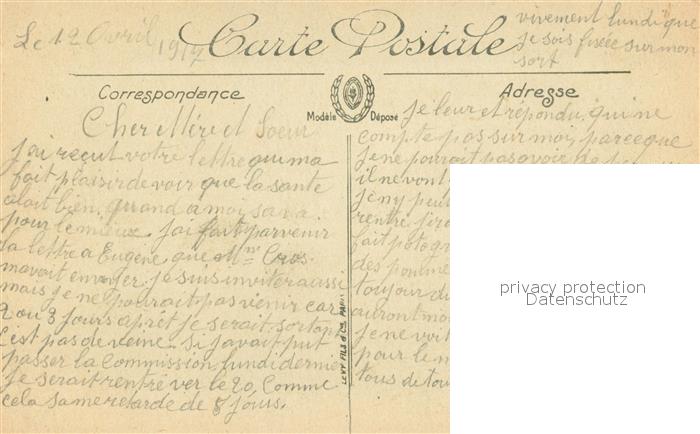 Le 12 Avril 1917
Carte Postale
vivement lundi que
je sois fixée sur mon
sort
Correspondance
Modèle Déposé
Adresse
Cher Mére et Soeur
J'ai reçut votre lettre qui ma
fait plaisir de voir que la santé
alait bien, quand a moi sa va
pour le mieux. J'ai fait parvenir
la lettre a Eugène que Mme Cros
mavoit envoyer. je suis inviter aussi
mais je ne pourrait pas venir car
2 ou 3 jours aprêt je serait
C'est pas de veine. Si javait put
passer la Commission lundi dernier
je serait rentré ver le 20. Comme
cela sa me retarde de 8 jours.
LEVY FILS & Cie PARIS
Je leur et répondu, qui ne
compte pas sur moi, parceque
je ne pourrait pas avoir de
il ne vont
jeny peut
rentre
fait
des
toujour
auront
je ne voit
pour le
tous de
privacy protection
Datenschutz